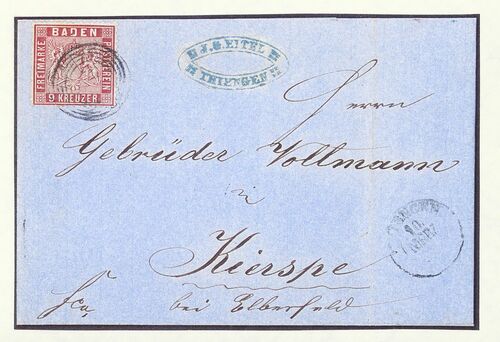 BADEN
FREIMARKE
POSTVEREIN
9 KREUZER
J. G. EITEL
THIENGEN
Herrn
Gebrüder Vollmann
in
Kierspe
bei Elberfeld
fco